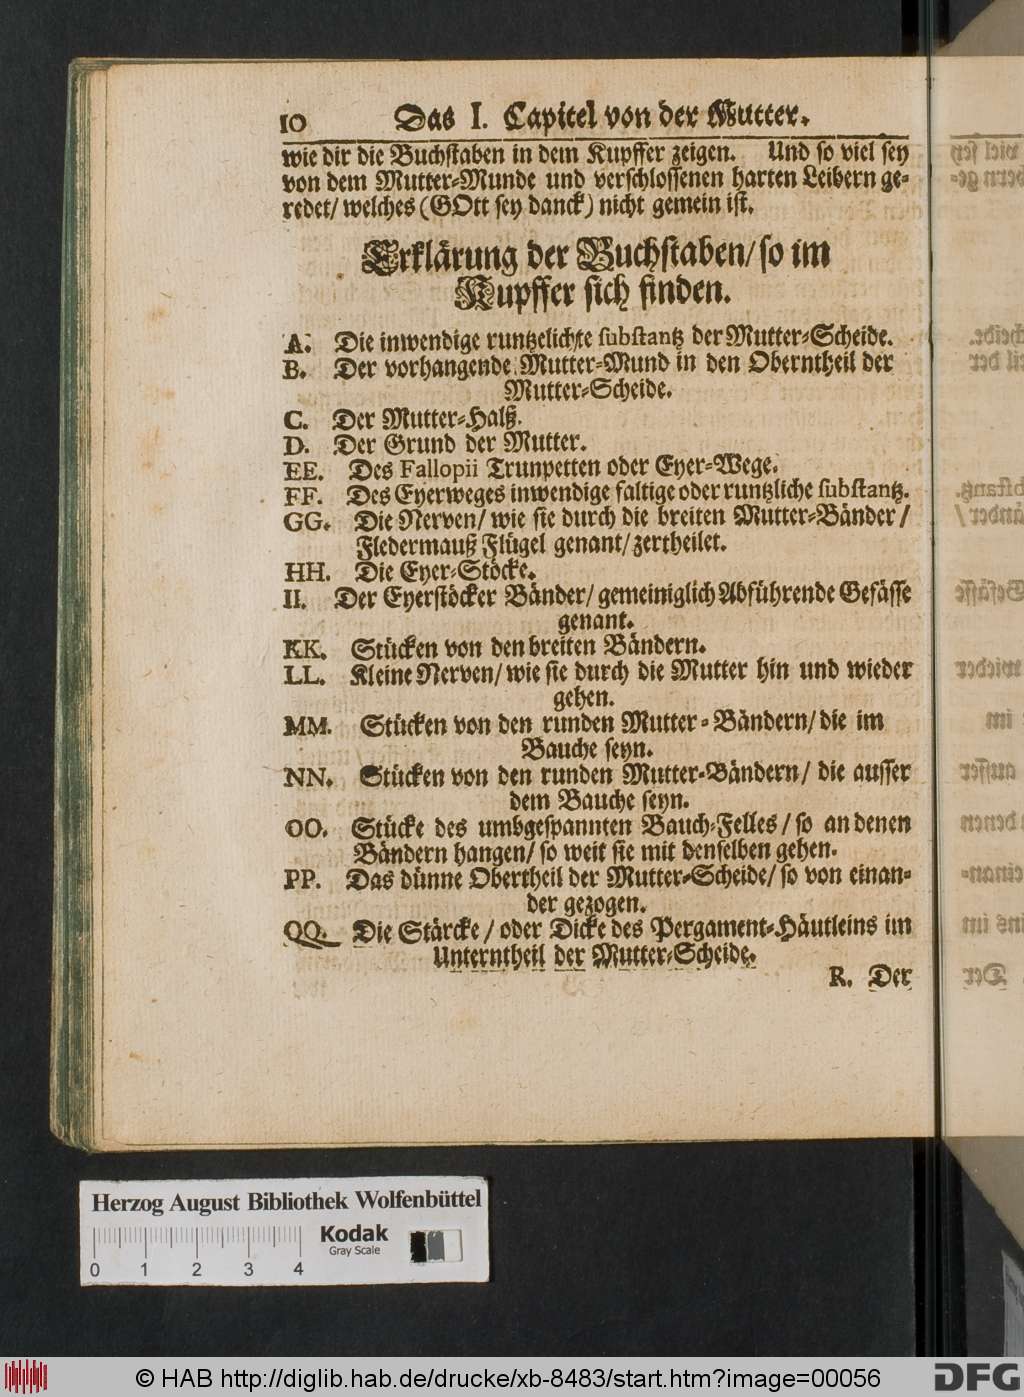 10 Das I. Capitel von der Mutter.
wie dir die Buchstaben in dem Kupffer zeigen. Und so viel sey
von dem Mutter-Munde und verschlossenen harten Leibern ge-
redet/ welches (GOtt sey danck) nicht gemein ist.
Erklärung der Buchstaben/ so im
Kupffer sich finden.
A. Die inwendige runtzelichte substantz der Mutter-Scheide.
B. Der vorhangende Mutter-Mund in den Oberntheil der
Mutter-Scheide.
C. Der Mutter-Halß.
D. Der Grund der Mutter.
EE. Des Fallopii Trunpetten oder Eyer-Wege.
FF. Des Eyerweges inwendige faltige oder runtzliche substantz.
GG. Die Nerven/ wie sie durch die breiten Mutter-Bänder/
Fledermauß Flügel genant/ zertheilet.
HH. Die Eyer-Stöcke.
II. Der Eyerstöcker Bänder/ gemeiniglich Abführende Gefässe
genant.
KK. Stücken von den breiten Bändern.
LL. Kleine Nerven/ wie sie durch die Mutter hin und wieder
gehen.
MM. Stücken von den runden Mutter-Bändern/ die im
Bauche seyn.
NN. Stücken von den runden Mutter-Bändern/ die ausser
dem Bauche seyn.
OO. Stücke des umbgespannten Bauch-Felles/ so an denen
Bändern hangen/ so weit sie mit denselben gehen.
PP. Das dünne Obertheil der Mutter-Scheide/ so von einan-
der gezogen.
QQ. Die Stärcke/ oder Dicke des Pergament-Häutleins im
Unterntheil der Mutter-Scheide.
R. Der
Herzog August Bibliothek Wolfenbüttel
Kodak
Gray Scale
0 1 2 3 4
© HAB http://diglib.hab.de/drucke/xb-8483/start.htm?image=00056
DFG